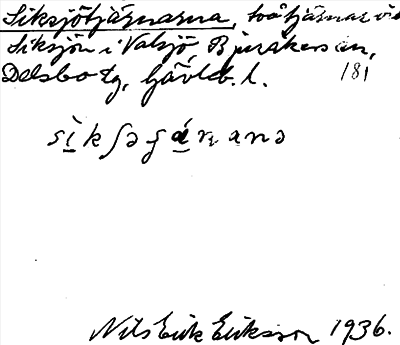 Siksjötjärnarna, två tjärnar vid
Siksjön i Valsjö Bjuråkers sn,
Delsbo tg, Gävleb. l. 181
sìkʃəʒánanə
Nils Erik Eriksson 1936.